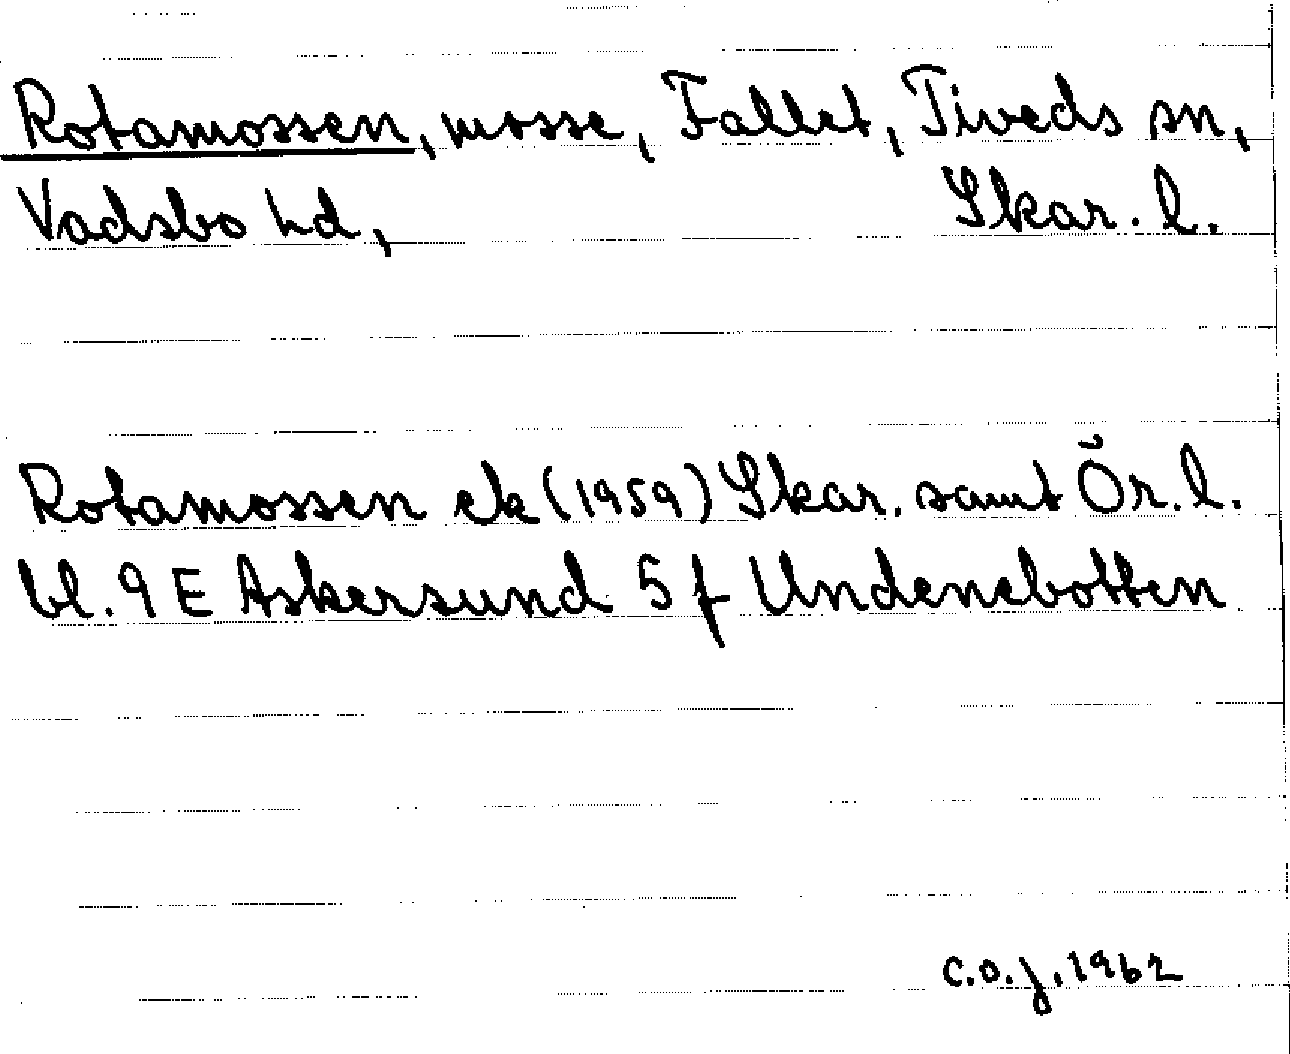 Rotamossen, mosse, Fallet, Tiveds sn,
Vadsbo hd, Skar. l.
Rotamossen ek (1959) Skar. samt Ör. l.
bl. 9 E Askersund 5 f Undenebotten
C.O.J. 1962